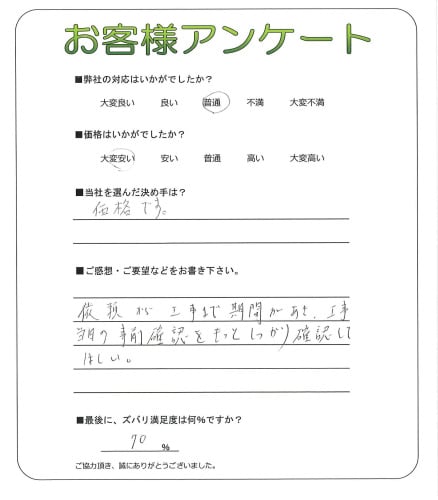 お客様アンケート
■弊社の対応はいかがでしたか？
大変良い 良い 普通 不満 大変不満
■価格はいかがでしたか？
大変安い 安い 普通 高い 大変高い
■当社を選んだ決め手は？
価格です。
■ご感想・ご要望などをお書き下さい。
依頼から工事まで期間があき、工事
当日の事前確認をもっとしっかり確認して
ほしい。
■最後に、ズバリ満足度は何％ですか？
70 ％
ご協力頂き、誠にありがとうございました。